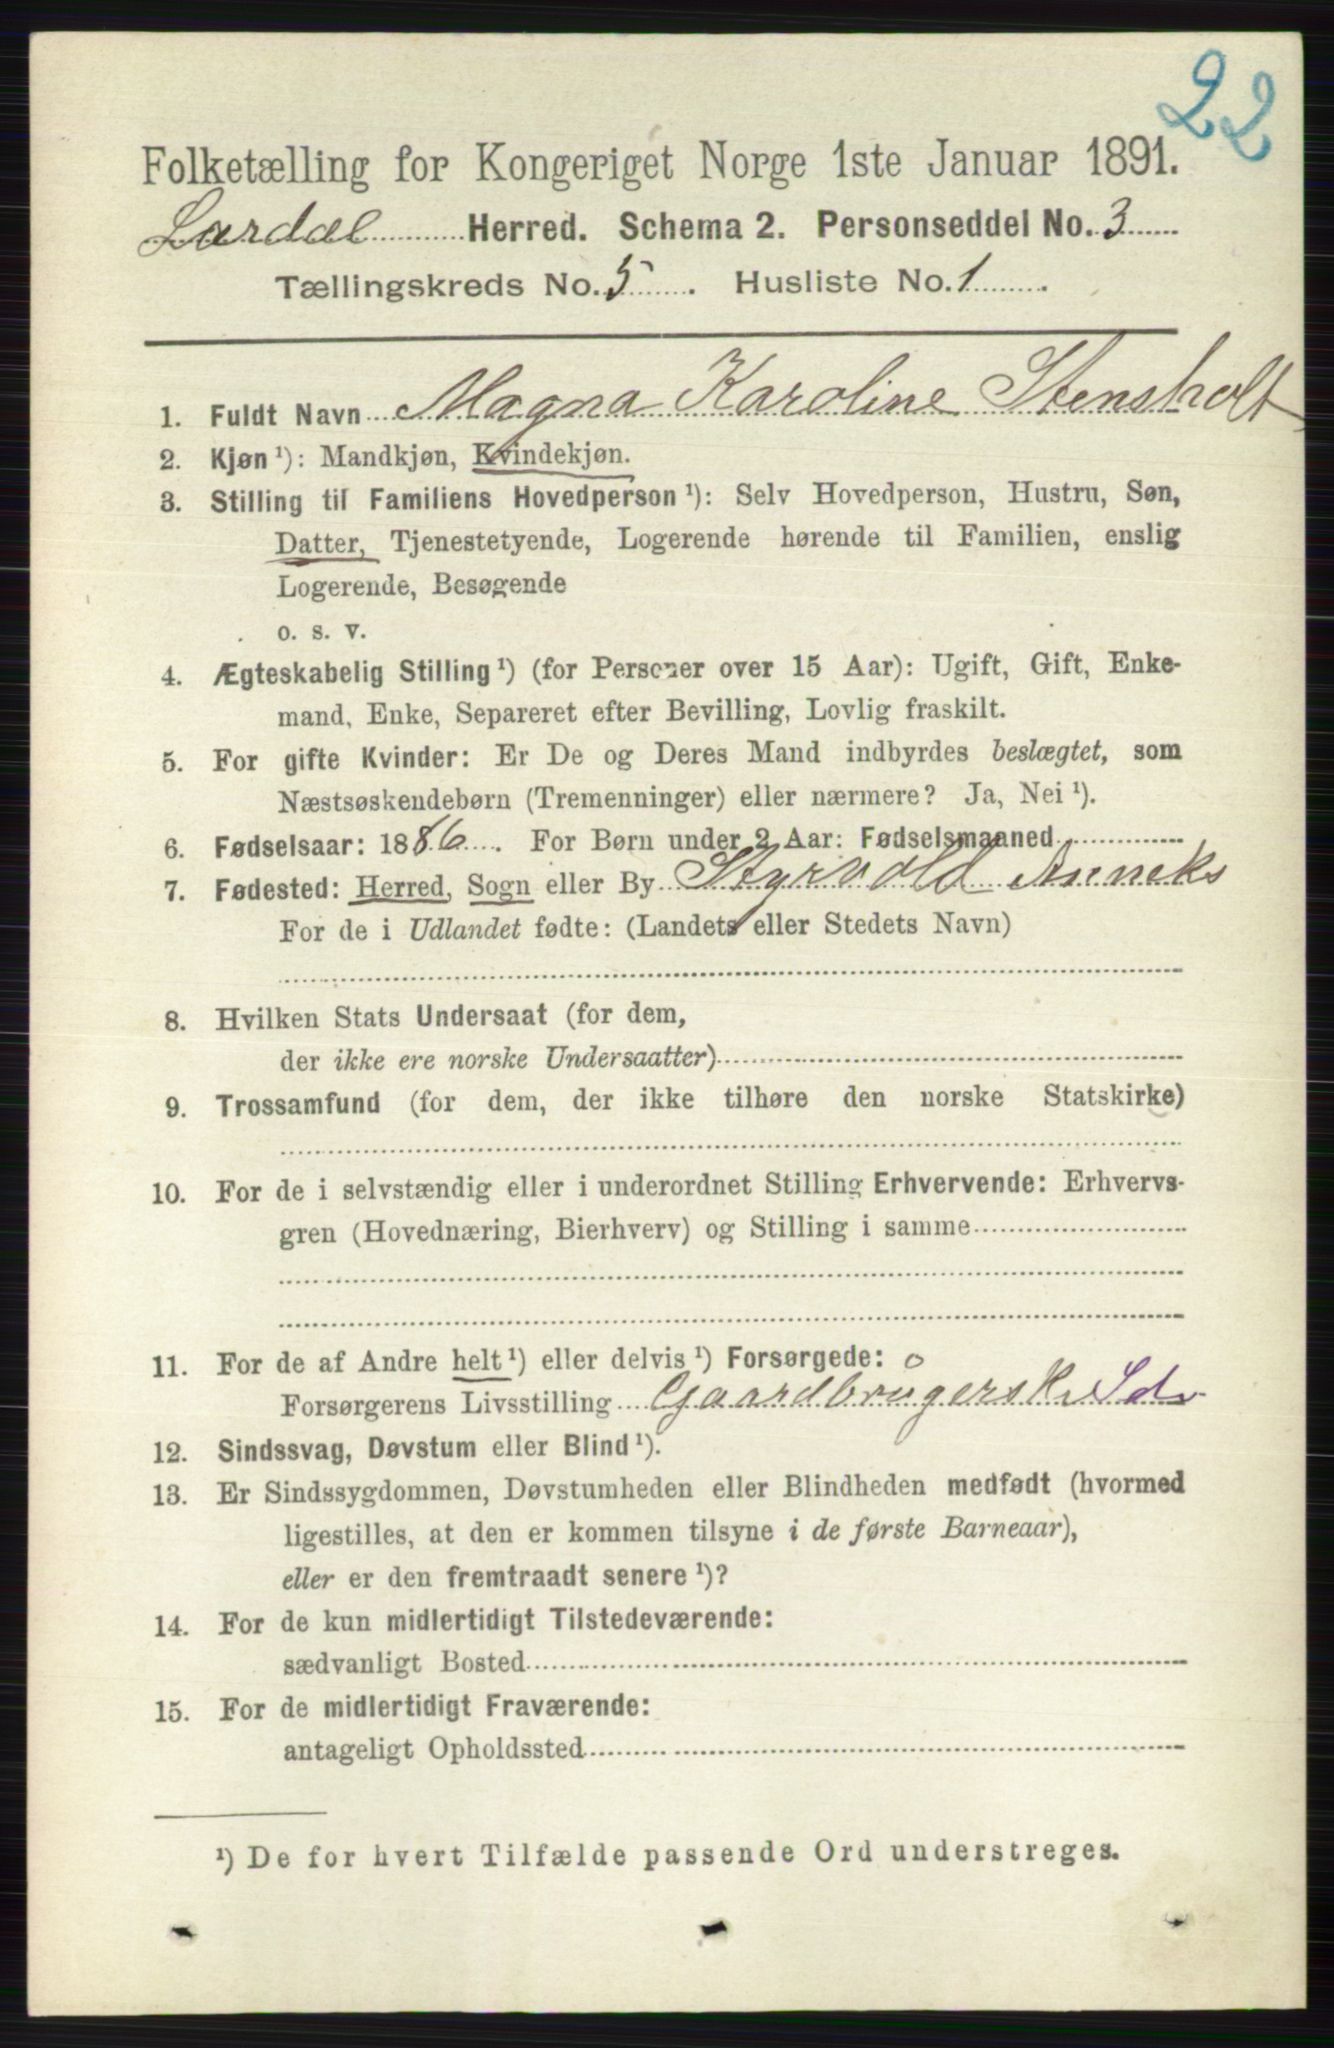 22
Folketælling for Kongeriget Norge 1ste Januar 1891.
Lardal Herred. Schema 2. Personseddel No. 3
Tællingskreds No. 5. Husliste No. 1.
1. Fuldt Navn Magna Karoline Stensholt
2. Kjøn ¹): Mandkjøn, Kvindekjøn.
3. Stilling til Familiens Hovedperson ¹): Selv Hovedperson, Hustru, Søn,
Datter, Tjenestetyende, Logerende hørende til Familien, enslig
Logerende, Besøgende
o. s. v.
4. Ægteskabelig Stilling ¹) (for Personer over 15 Aar): Ugift, Gift, Enke-
mand, Enke, Separeret efter Bevilling, Lovlig fraskilt.
5. For gifte Kvinder: Er De og Deres Mand indbyrdes beslægtet, som
Næstsøskendebørn (Tremenninger) eller nærmere? Ja, Nei ¹).
6. Fødselsaar: 1886. For Børn under 2 Aar: Fødselsmaaned
7. Fødested: Herred, Sogn eller By Styrvold Anneks
For de i Udlandet fødte: (Landets eller Stedets Navn)
8. Hvilken Stats Undersaat (for dem,
der ikke ere norske Undersaatter)
9. Trossamfund (for dem, der ikke tilhøre den norske Statskirke)
10. For de i selvstændig eller i underordnet Stilling Erhvervende: Erhvervs-
gren (Hovednæring, Bierhverv) og Stilling i samme
11. For de af Andre helt ¹) eller delvis ¹) Forsørgede: o
Forsørgerens Livsstilling Gaardbrugerske
12. Sindssvag, Døvstum eller Blind ¹).
13. Er Sindssygdommen, Døvstumheden eller Blindheden medfødt (hvormed
ligestilles, at den er kommen tilsyne i de første Barneaar),
eller er den fremtraadt senere ¹)?
14. For de kun midlertidigt Tilstedeværende:
sædvanligt Bosted
15. For de midlertidigt Fraværende:
antageligt Opholdssted
¹) De for hvert Tilfælde passende Ord understreges.